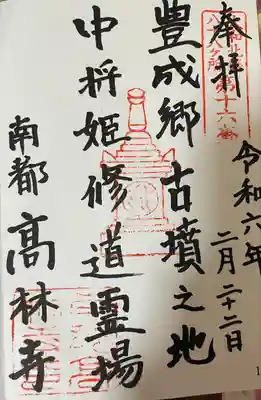 奉拝
令和六年
二月二十二日
豊成郷古墳之地
中将姫修道霊場
南都高林寺
第十六番
1